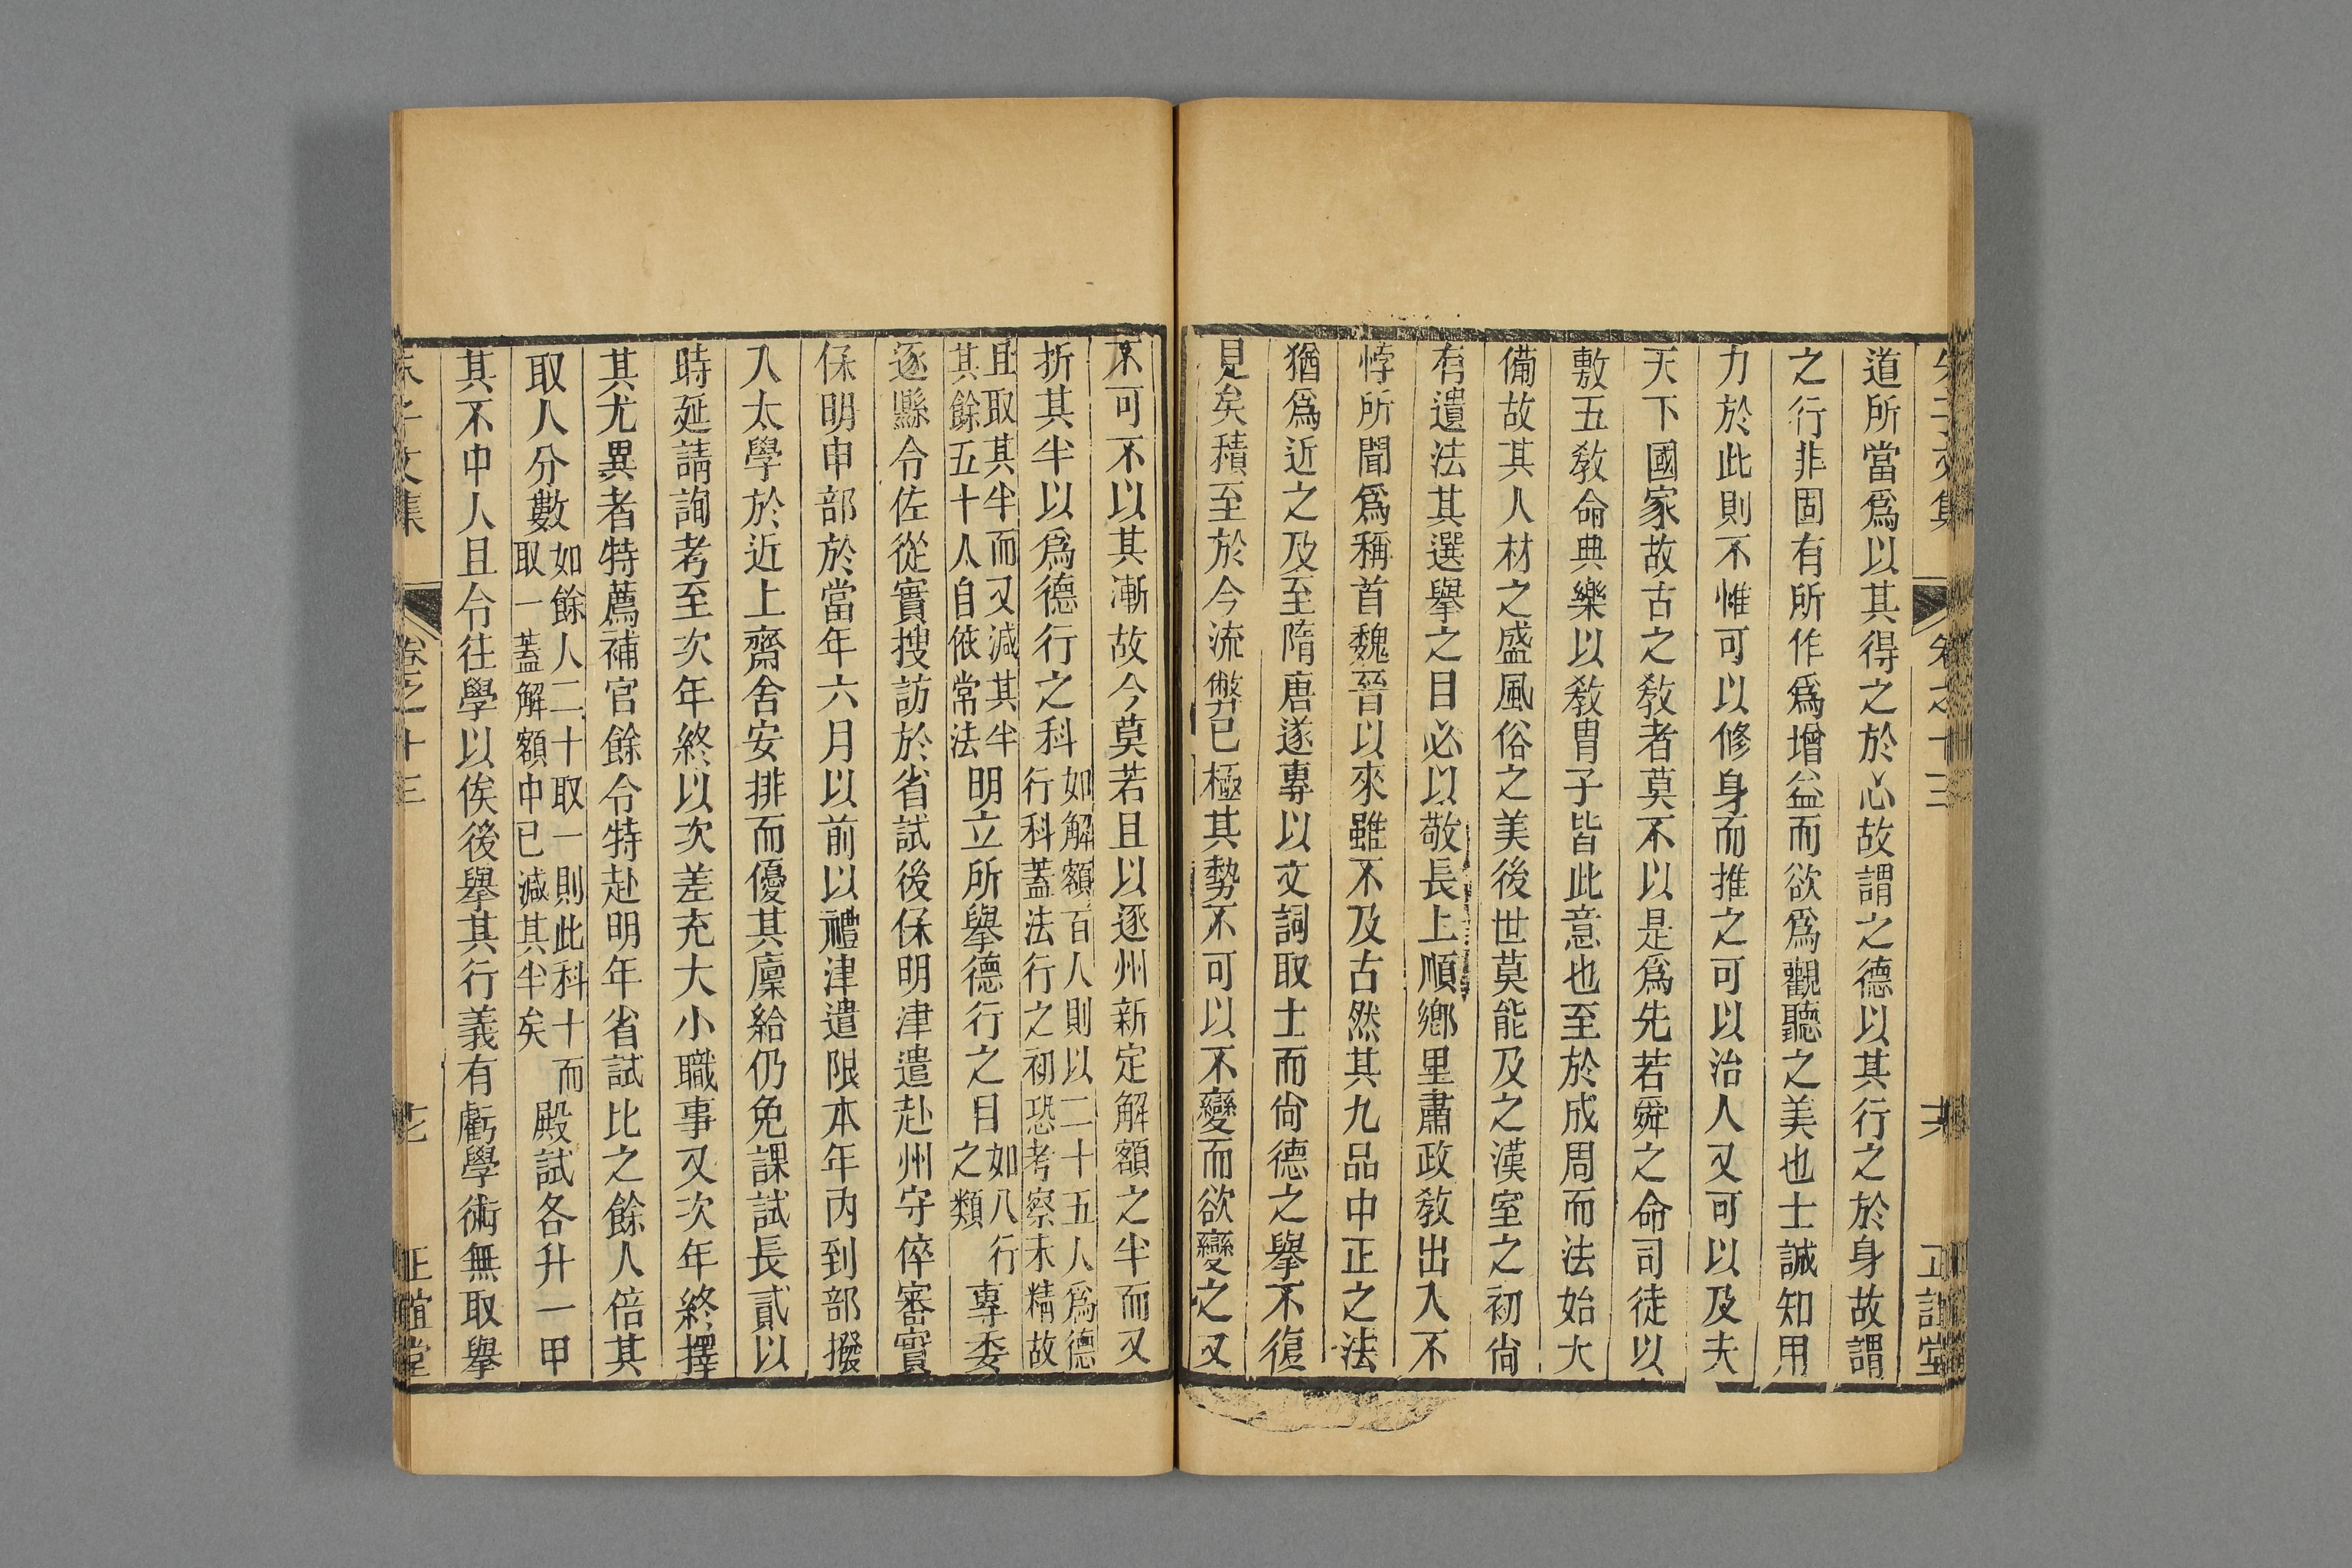 道所當爲以其得之於心故謂之德以其行之於身故謂
之行非固有所作爲增益而欲爲觀聽之美也士誠知用
力於此則不惟可以修身而推之可以治人又可以及夫
天下國家故古之敎者莫不以是爲先若舜之命司徒以
敷五敎命典樂以敎胄子皆此意也至於成周而法始大
備故其人材之盛風俗之美後世莫能及之漢室之初尙
有遺法其選擧之目必以敬長上順鄕里肅政敎出入不
悖所聞爲稱首魏晉以來雖不及古然其九品中正之法
猶爲近之及至隋唐遂專以文詞取士而尙德之擧不復
見矣積至於今流弊已極其勢不可以不變而欲變之又
不可不以其漸故今莫若且以逐州新定解額之半而又
折其半以爲德行之科如解額百人則以二十五人爲德
行科蓋法行之初恐考察未精故
且取其半而又減其半
其餘五十人自依常法明立所擧德行之目如八行
之類專委
逐縣令佐從實搜訪於省試後保明津遣赴州守倅審實
保明申部於當年六月以前以禮津遣限本年內到部撥
入太學於近上齋舍安排而優其廩給仍免課試長貳以
時延請詢考至次年終以次差充大小職事又次年終擇
其尤異者特薦補官餘令特赴明年省試比之餘人倍其
取人分數如餘人二十取一則此科十而
取一蓋解額中已減其半矣殿試各升一甲
其不中人且令往學以俟後擧其行義有虧學術無取擧
朱子文集 卷之十三 七 正誼堂